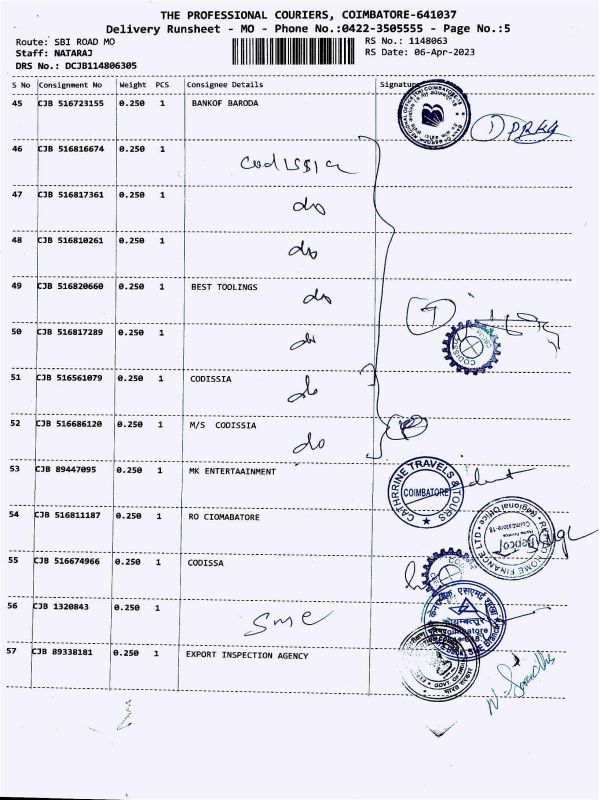 THE PROFESSIONAL COURIERS, COIMBATORE-641037
Delivery Runsheet - MO - Phone No.:0422-3505555 - Page No.:5
Route: SBI ROAD MO RS No.: 1148063
Staff: NATARAJ RS Date: 06-Apr-2023
DRS No.: DCJB114806305
S No Consignment No Weight PCS Consignee Details Signature
45 CJB 516723155 0.250 1 BANKOF BARODA
46 CJB 516816674 0.250 1 codissia
47 CJB 516817361 0.250 1 do
48 CJB 516810261 0.250 1 do
49 CJB 516820660 0.250 1 BEST TOOLINGS do
50 CJB 516817289 0.250 1 do
CODISSIA
51 CJB 516561079 0.250 1 CODISSIA do
52 CJB 516686120 0.250 1 M/S CODISSIA do
53 CJB 89447095 0.250 1 MK ENTERTAAINMENT
CATHRRINE TRAVELS & TOURS
COIMBATORE
54 CJB 516811187 0.250 1 RO CIOMABATORE
HOME FINANCE LTD
Regional Office
Repco
Coimbatore-18
55 CJB 516674966 0.250 1 CODISSA
56 CJB 1320843 0.250 1 Sme
कोयम्बत्तूर
Coimbatore
57 CJB 89338181 0.250 1 EXPORT INSPECTION AGENCY